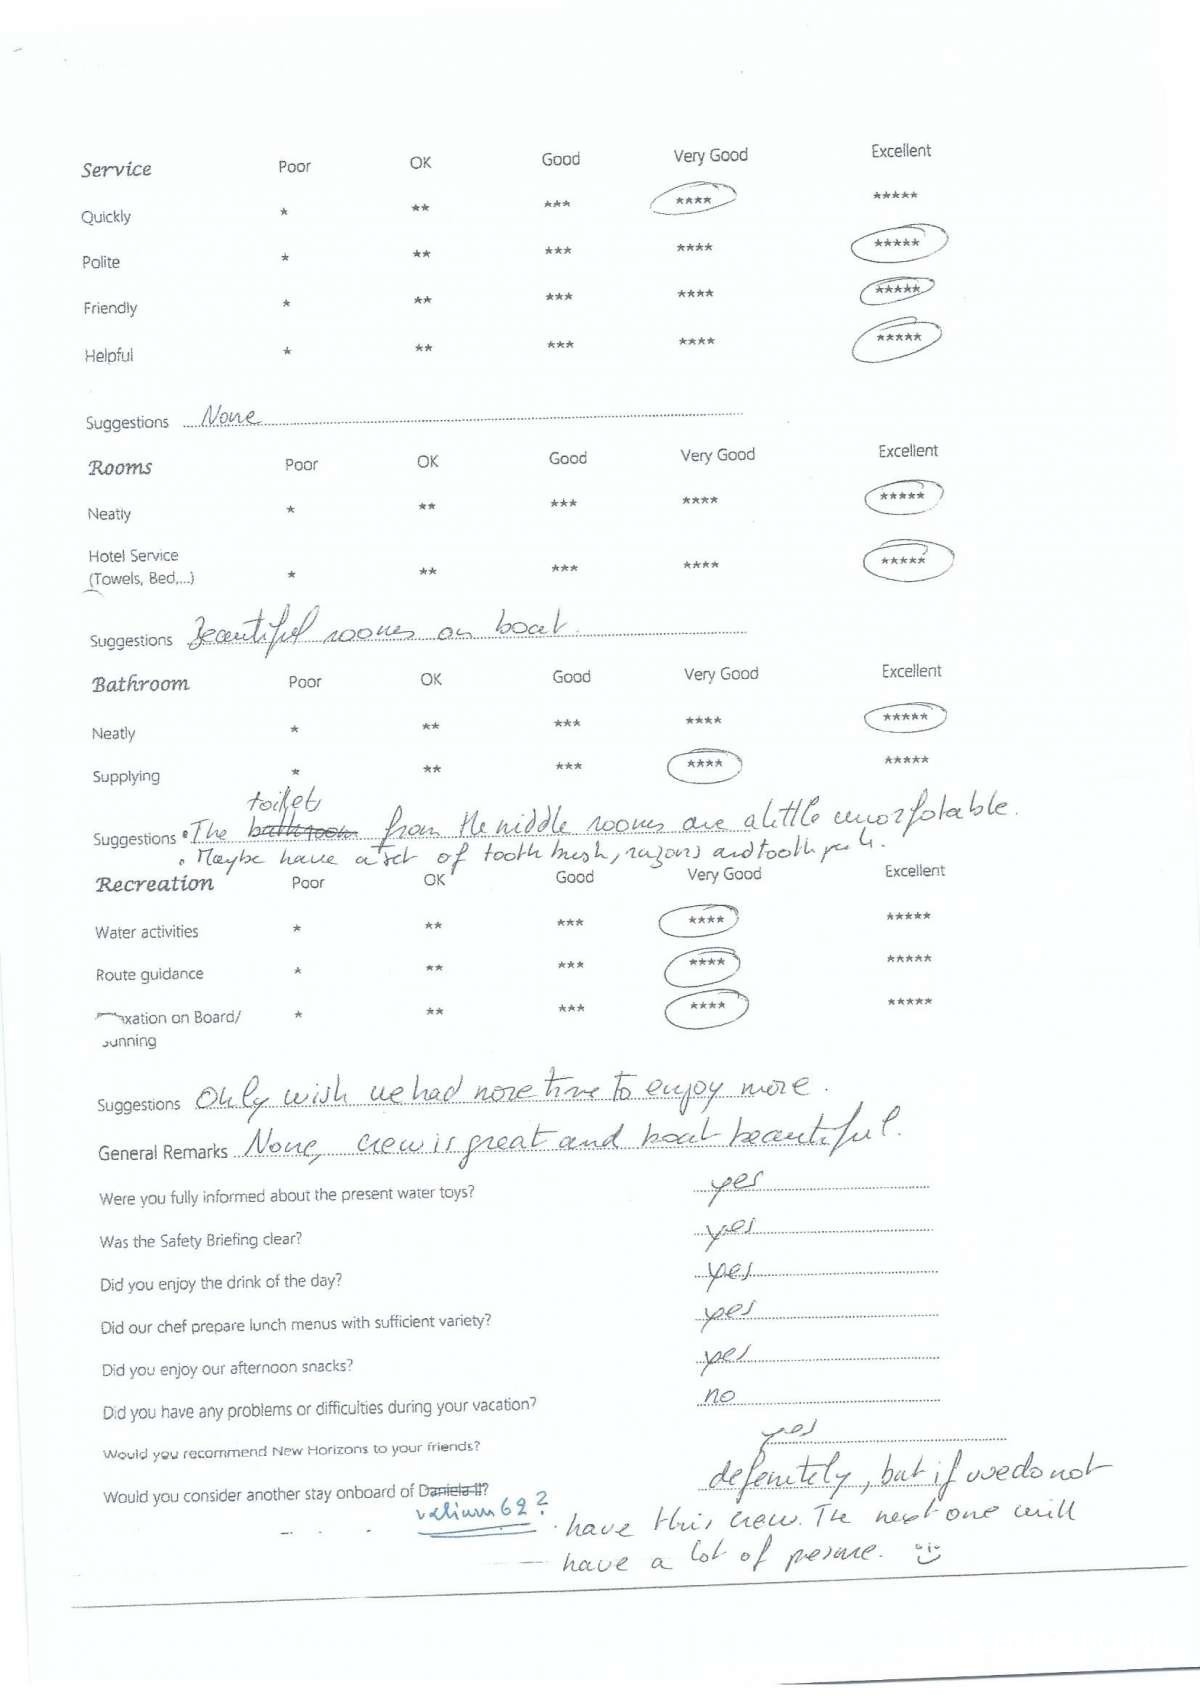 Service Poor OK Good Very Good Excellent
Quickly * ** *** **** *****
Polite * ** *** **** *****
Friendly * ** *** **** *****
Helpful * ** *** **** *****
Suggestions None
Rooms Poor OK Good Very Good Excellent
Neatly * ** *** **** *****
Hotel Service
(Towels, Bed,...) * ** *** **** *****
Suggestions Beautiful rooms on boat.
Bathroom Poor OK Good Very Good Excellent
Neatly * ** *** **** *****
Supplying * ** *** **** *****
toilets
Suggestions • The bathroom from the middle rooms are a little
• Maybe have a set of tooth brush, razors and tooth
Recreation Poor OK Good Very Good Excellent
Water activities * ** *** **** *****
Route guidance * ** *** **** *****
xation on Board/ * ** *** **** *****
Sunning
Suggestions Only wish we had more time to enjoy more.
General Remarks None, crew is great and boat beautiful.
Were you fully informed about the present water toys? yes
Was the Safety Briefing clear? yes
Did you enjoy the drink of the day? yes
Did our chef prepare lunch menus with sufficient variety? yes
Did you enjoy our afternoon snacks? yes
Did you have any problems or difficulties during your vacation? no
Would you recommend New Horizons to your friends? yes
Would you consider another stay onboard of Daniela II? defenitely, but if we do not
valium 62?
have this crew. The next one will
have a lot of